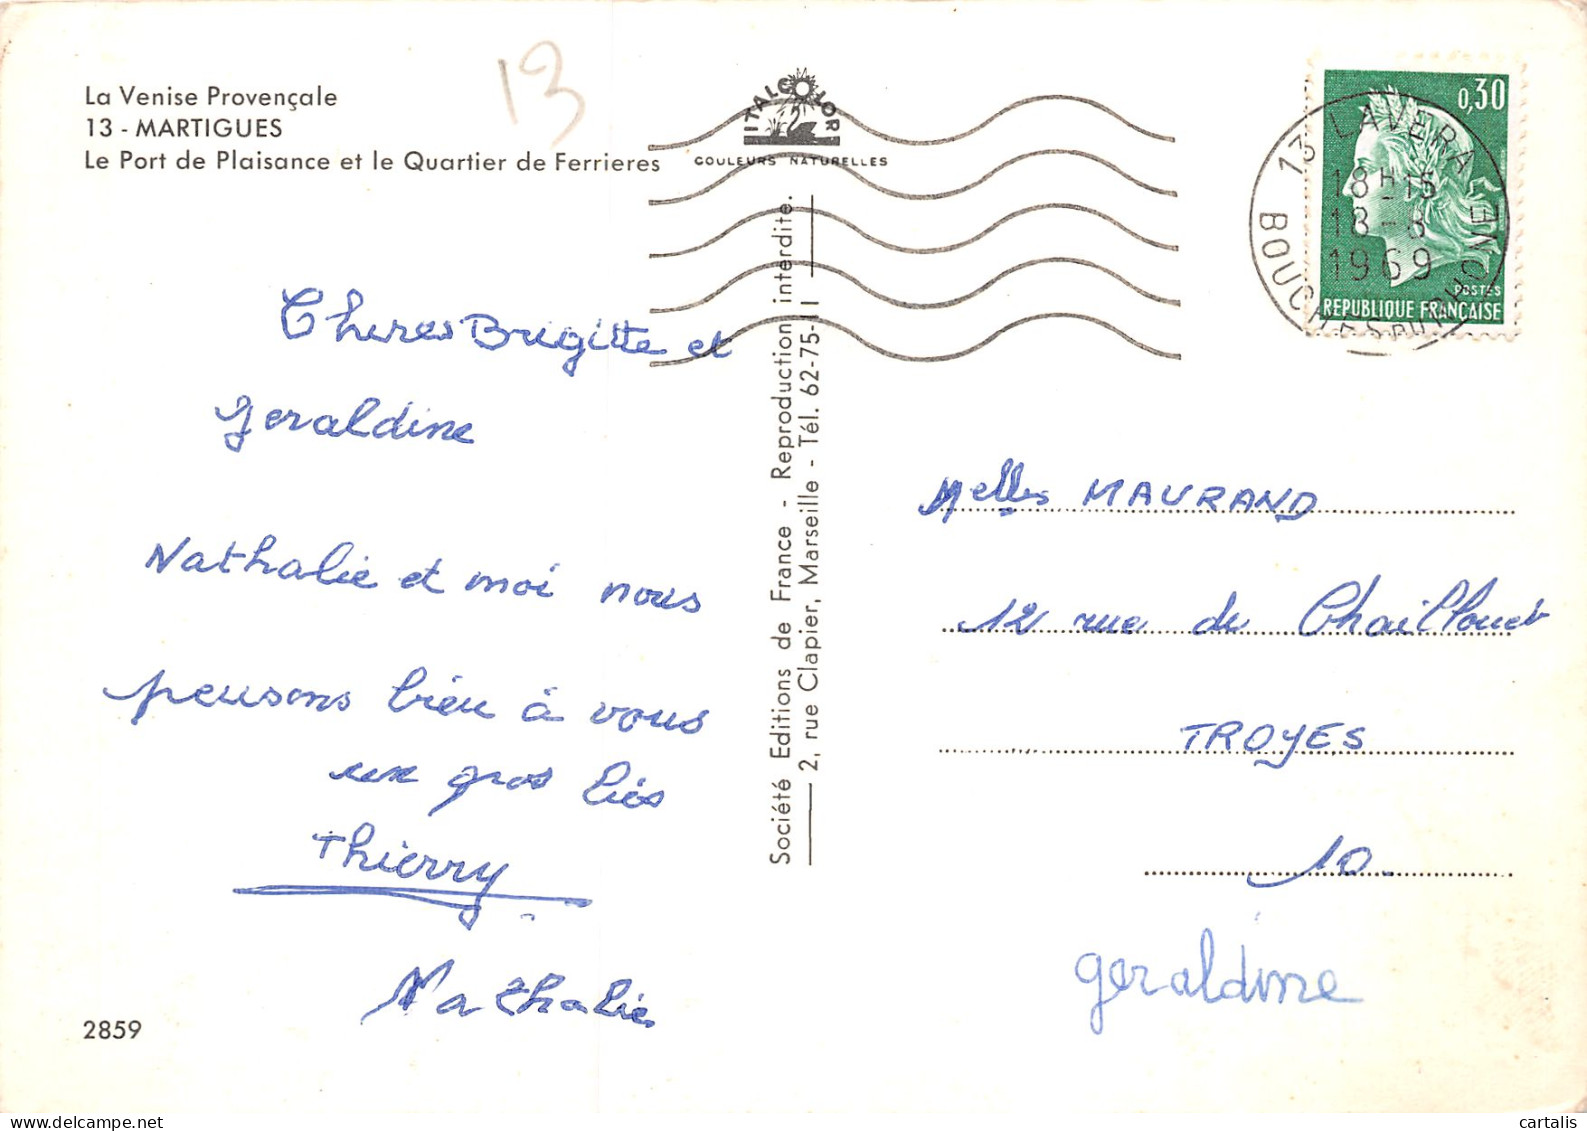 La Venise Provençale
13 - MARTIGUES
Le Port de Plaisance et le Quartier de Ferrieres
13
ITALCOLOR
COULEURS NATURELLES
0,30
POSTES
REPUBLIQUE FRANÇAISE
13 LAVERA
18 H 15
18 - 8
1969
BOUCHES DU RHONE
Cheres Brigitte et
geraldine
Nathalie et moi nous
pensons bien à vous
un gros biés
Thierry
Nathalie
2859
Société Editions de France - Reproduction interdite.
2, rue Clapier, Marseille - Tél. 62-75-11
Melles MAURAND
12 rue du Chaillouet
TROYES
10.
geraldine
cartalis